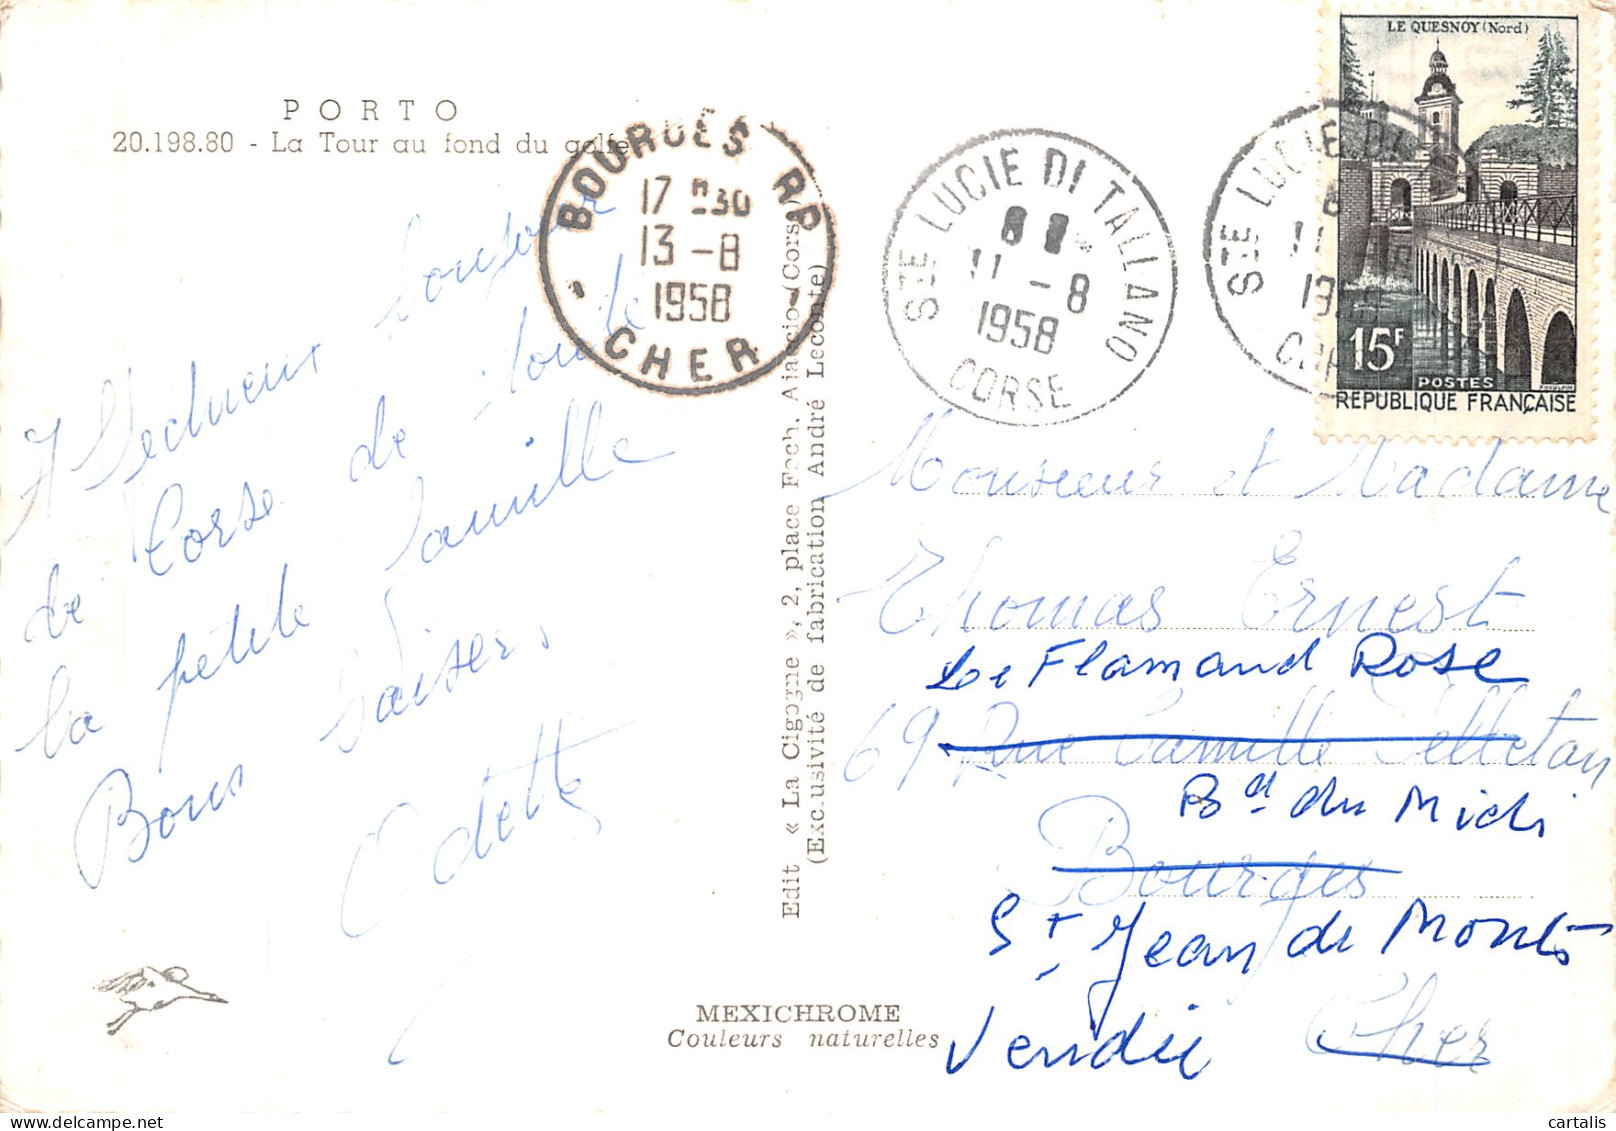 PORTO
20.198.80 - La Tour au fond du golfe
Bonjour
de Corse de toute
la petite famille
Bons baisers.
Odette
BOURGES RP
17 H 30
13 - 8
1958
CHER
Edit « La Cigogne », 2, place Foch. Ajaccio (Corse)
(Exclusivité de fabrication André Leconte)
MEXICHROME
Couleurs naturelles
STE LUCIE DI TALLANO
11 - 8
1958
CORSE
STE LUCIE DI
11
LE QUESNOY (Nord)
15F
POSTES
REPUBLIQUE FRANÇAISE
Monsieur et Madame
Thomas Ernest
Le Flamand Rose
69 Rue Camille Pelletan
Bd du Midi
Bourges
St Jean de Monts
Cher
Vendée
cartalis
www.delcampe.net